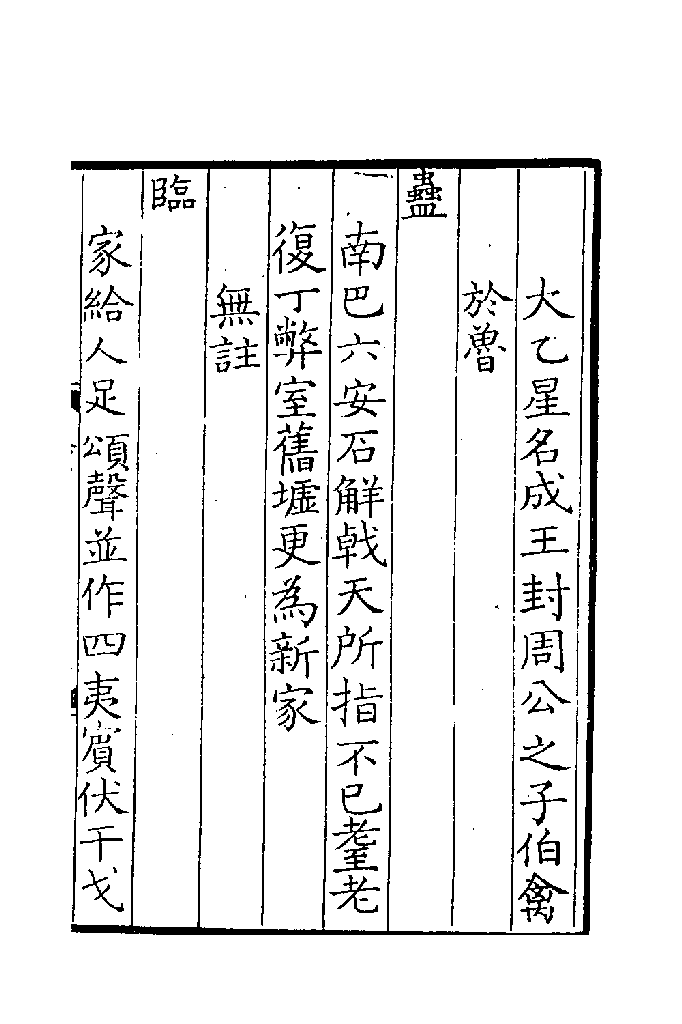 大乙星名成王封周公之子伯禽
於魯
蠱
南巴六安石觧戟天所指不已耋老
復丁弊室舊墟更為新家
無註
臨
家給人足頌聲並作四夷賓伏干戈